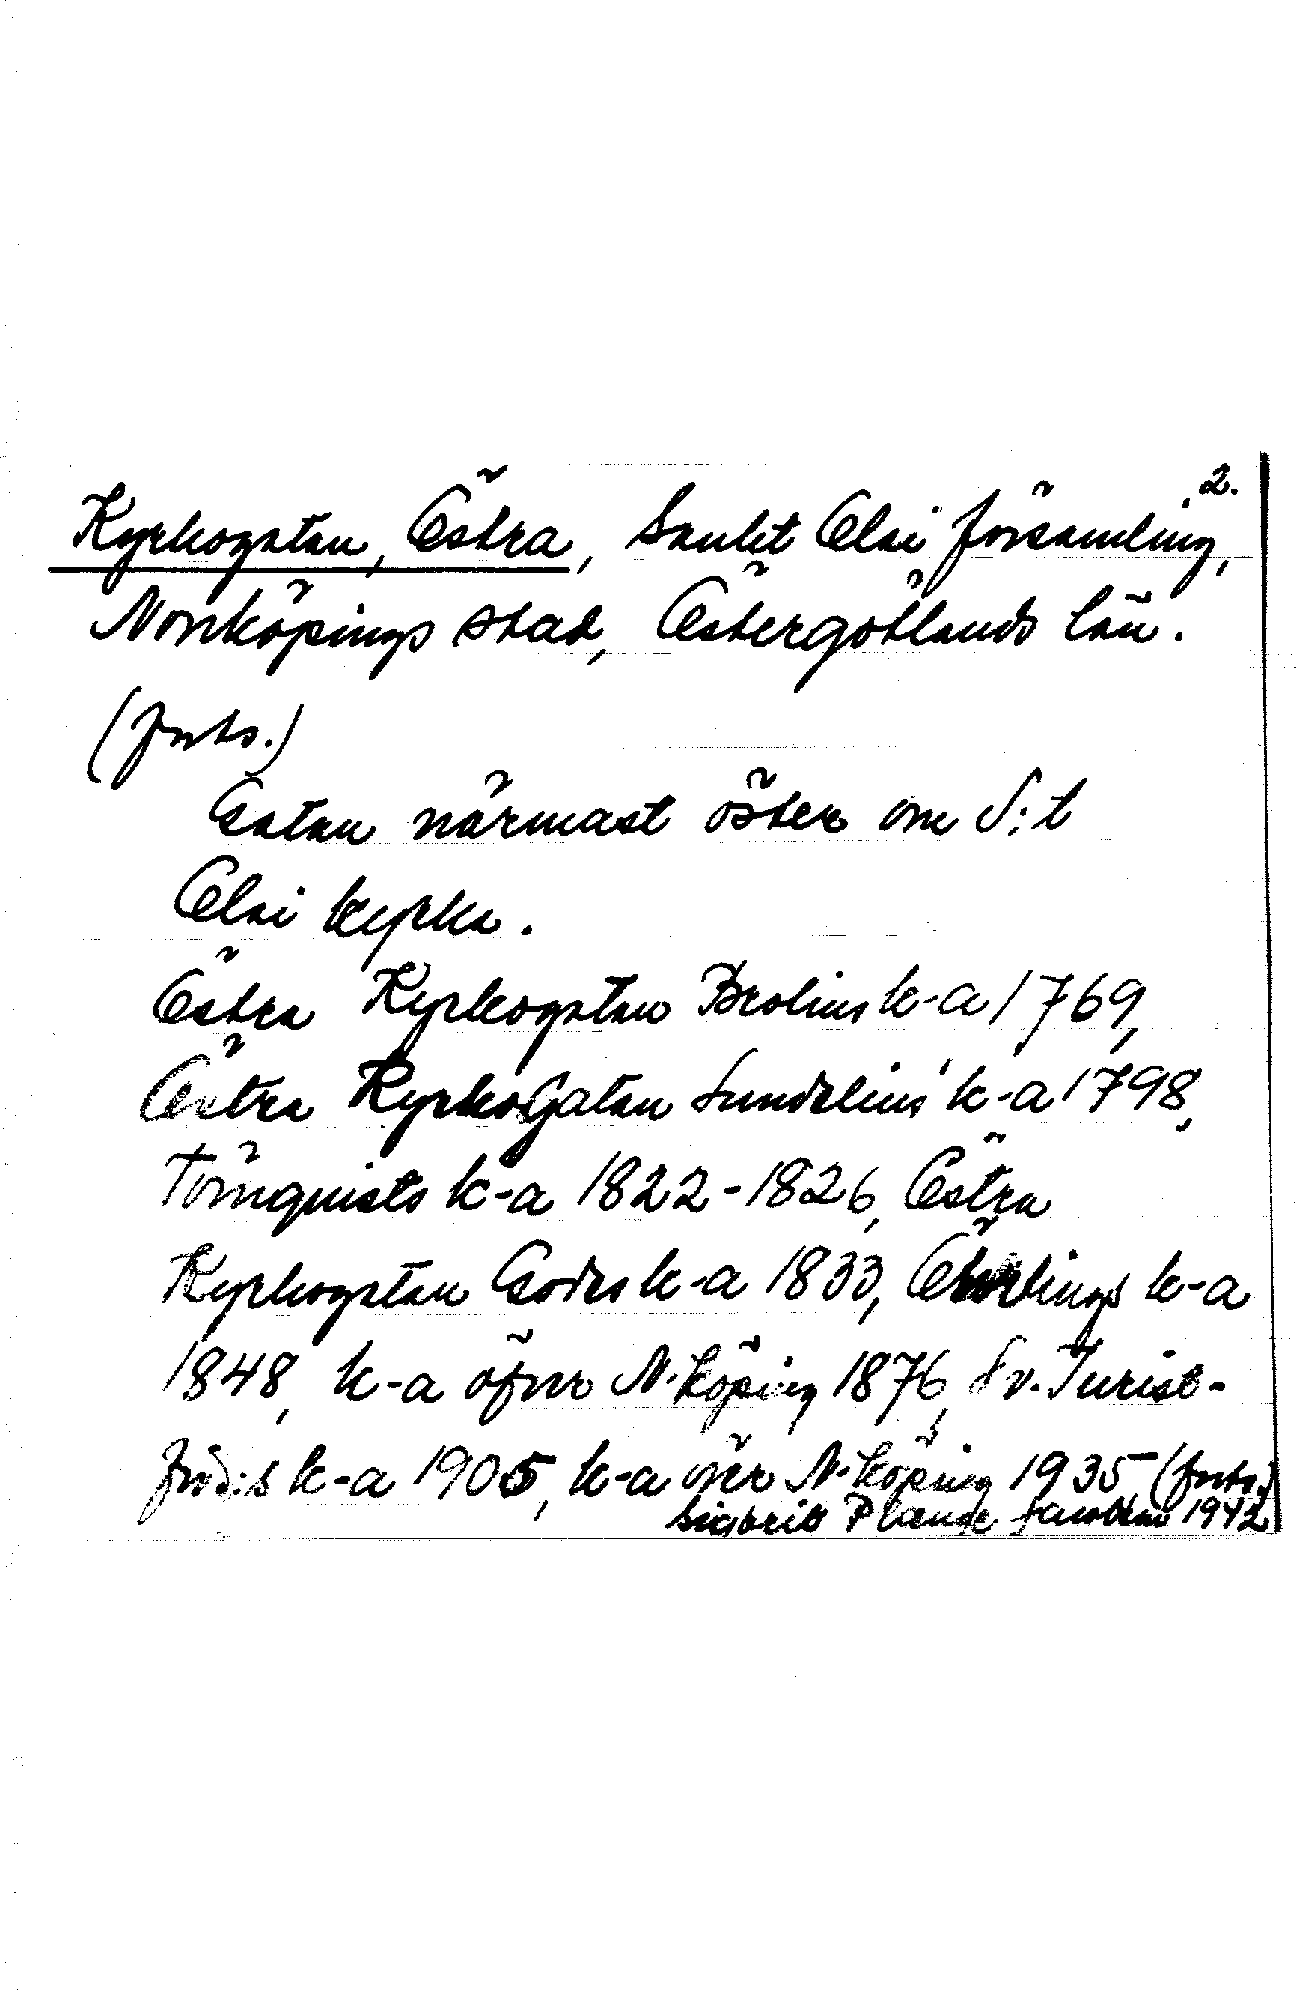 2.
Kyrkogatan, Östra, Sankt Olai församling,
Norrköpings stad, Östergötlands län.
(forts.)
Gatan närmast öster om S:t
Olai kyrka.
Östra Kyrkogatan Brolins k-a 1769,
Östra KyrkoGatan Sundelius' k-a 1798,
Törnquists k-a 1822-1826, Östra
Kyrkogatan k-a 1833, k-a
1848, k-a öfver N.köping 1876, Sv. Jurist-
förb:s k-a 1905, k-a över N.köping 1935 (forts.)
Sigbrit Plænge Jacobson 1942